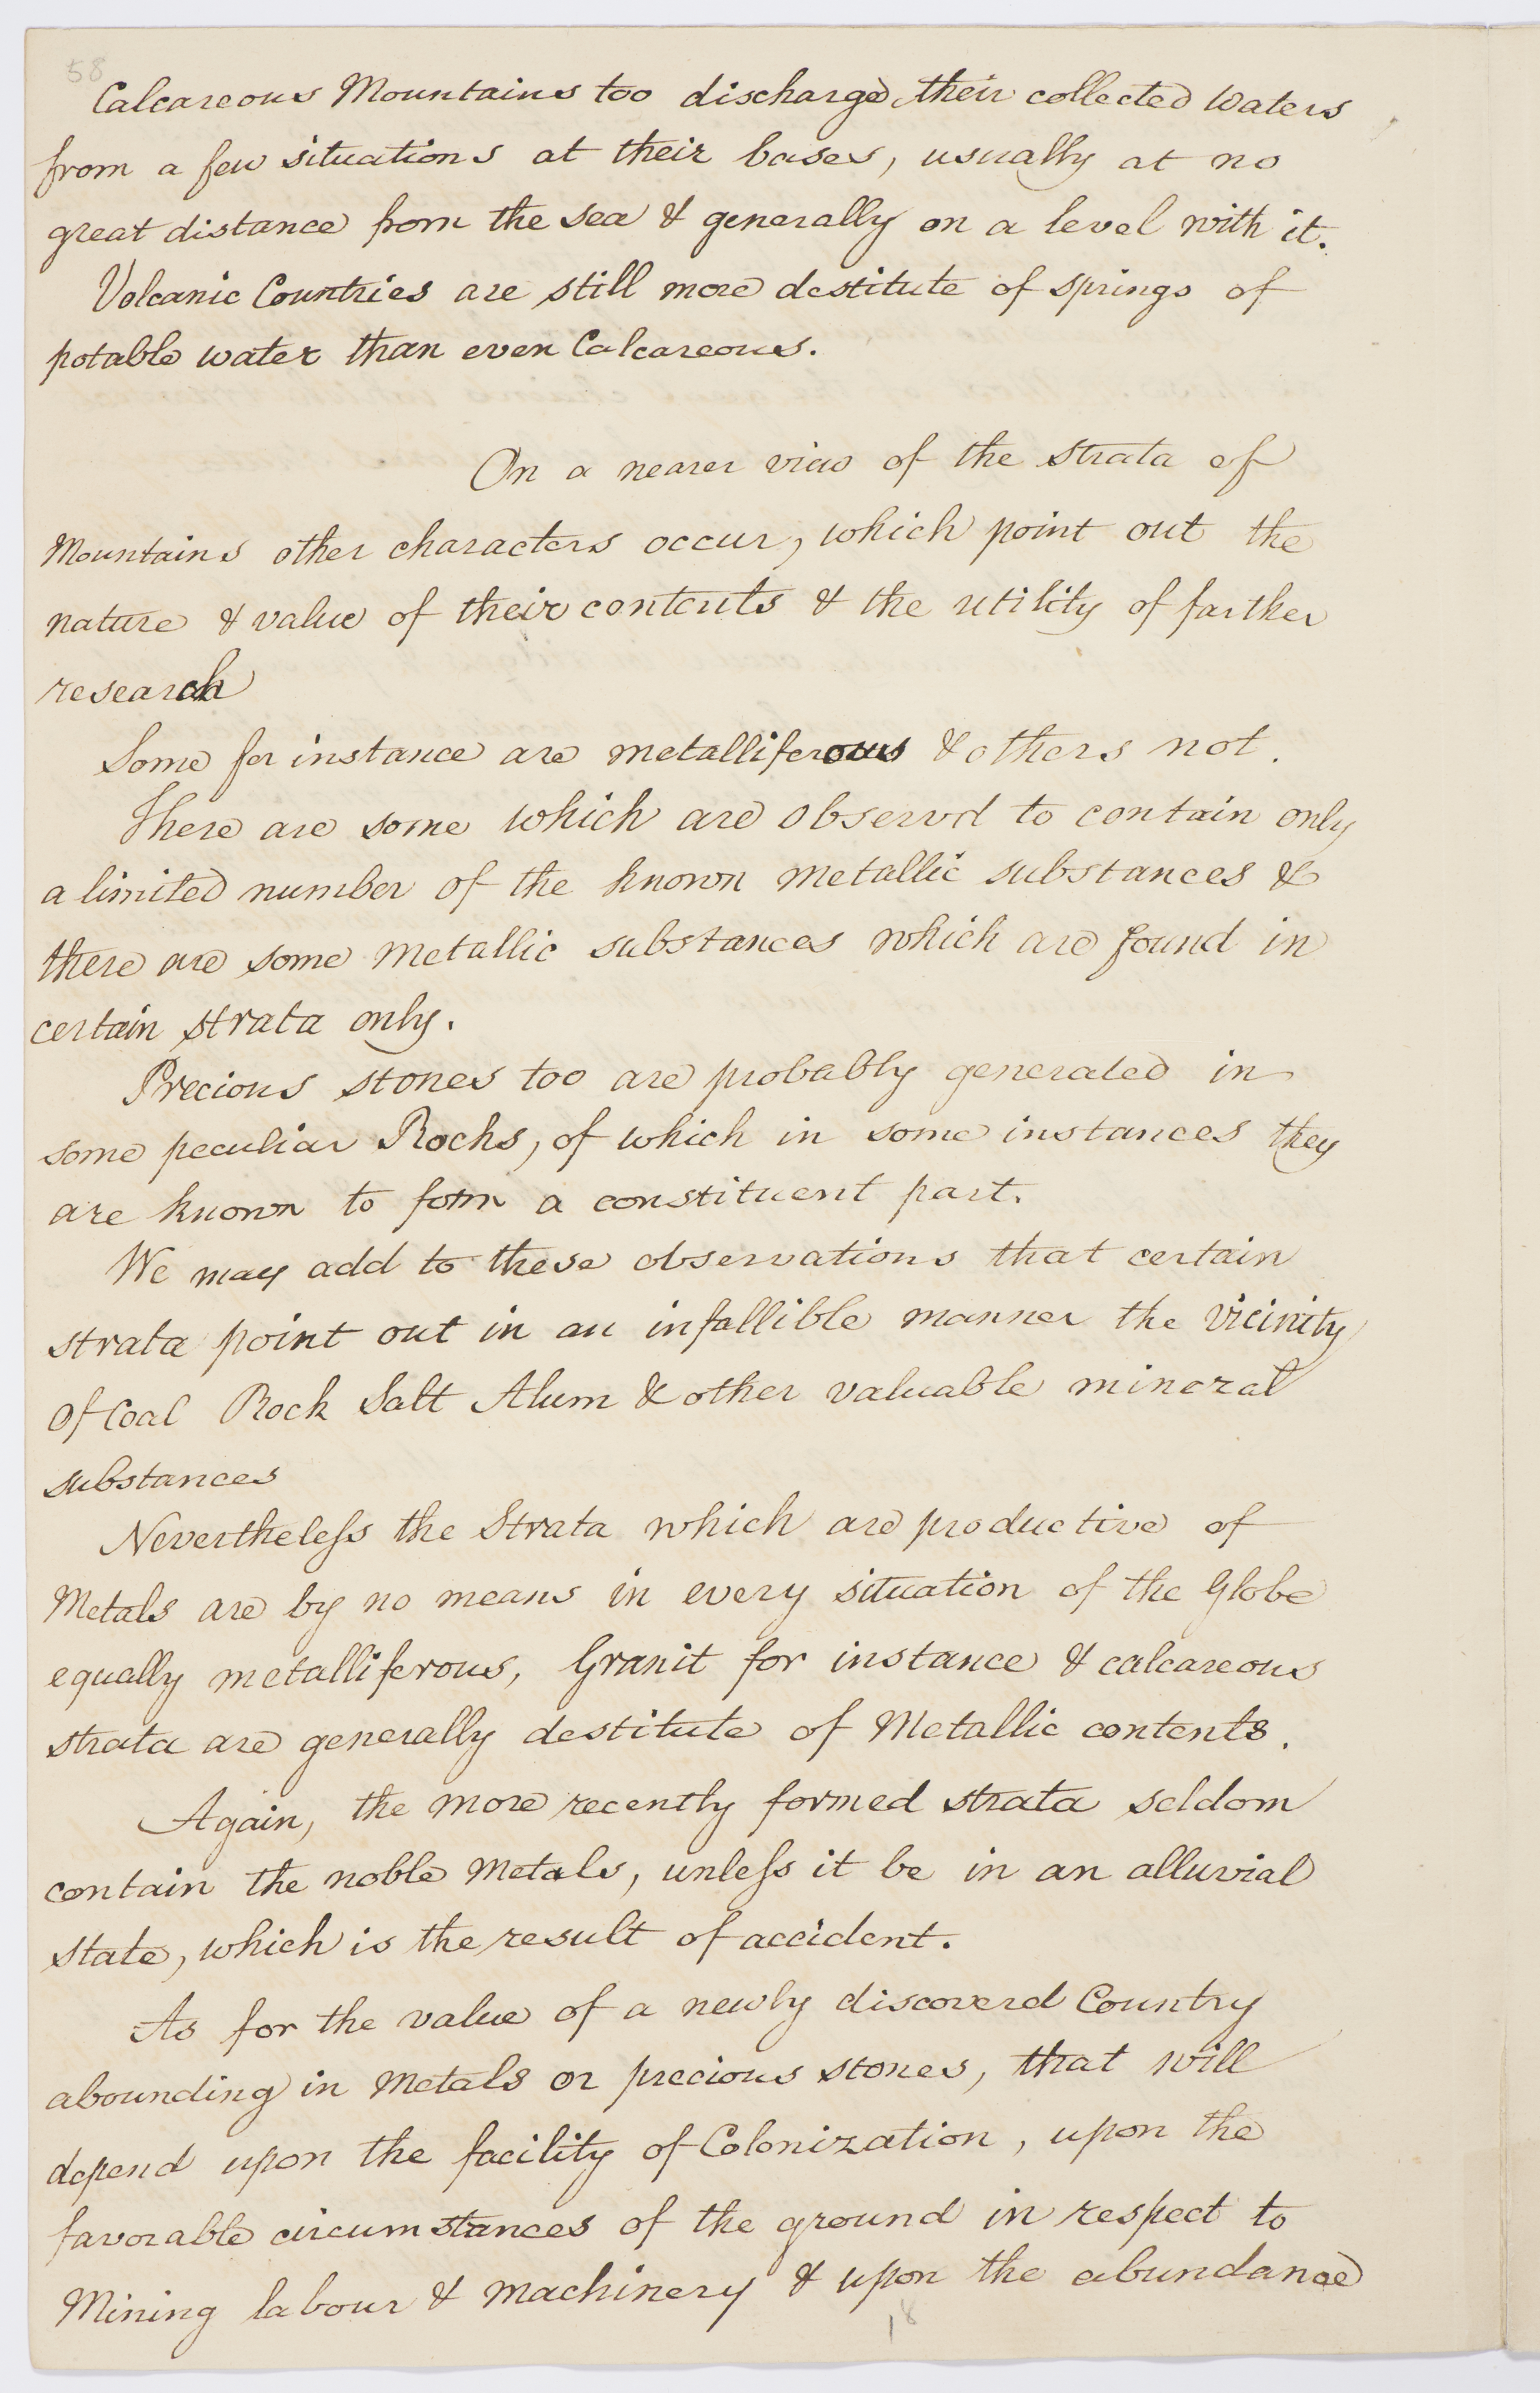 58
Calcareous Mountains too discharged their collected Waters
from a few situations at their bases, usually at no
great distance from the sea & generally on a level with it.
Volcanic Countries are still more destitute of springs of
potable water than even Calcareous.
On a nearer view of the strata of
Mountains other characters occur, which point out the
nature & value of their contents & the utility of farther
research
Some for instance are metalliferous & others not.
There are some which are observd to contain only
a limited number of the known metallic substances &
there are some metallic substances which are found in
certain strata only.
Precious stones too are probably generated in
some peculiar Rocks, of which in some instances they
are known to form a constituent part.
We may add to these observations that certain
strata point out in an infallible manner the vicinity
of Coal Rock Salt Alum & other valuable mineral
substances
Nevertheless the Strata which are productive of
Metals are by no means in every situation of the Globe
equally metalliferous, Granit for instance & calcareous
strata are generally destitute of Metallic contents.
Again, the more recently formed strata seldom
contain the noble Metals, unless it be in an alluvial
state, which is the result of accident.
As for the value of a newly discoverd Country
abounding in Metals or precious stones, that will
depend upon the facility of Colonization, upon the
favorable circumstances of the ground in respect to
Mining labour & machinery & upon the abundance
18